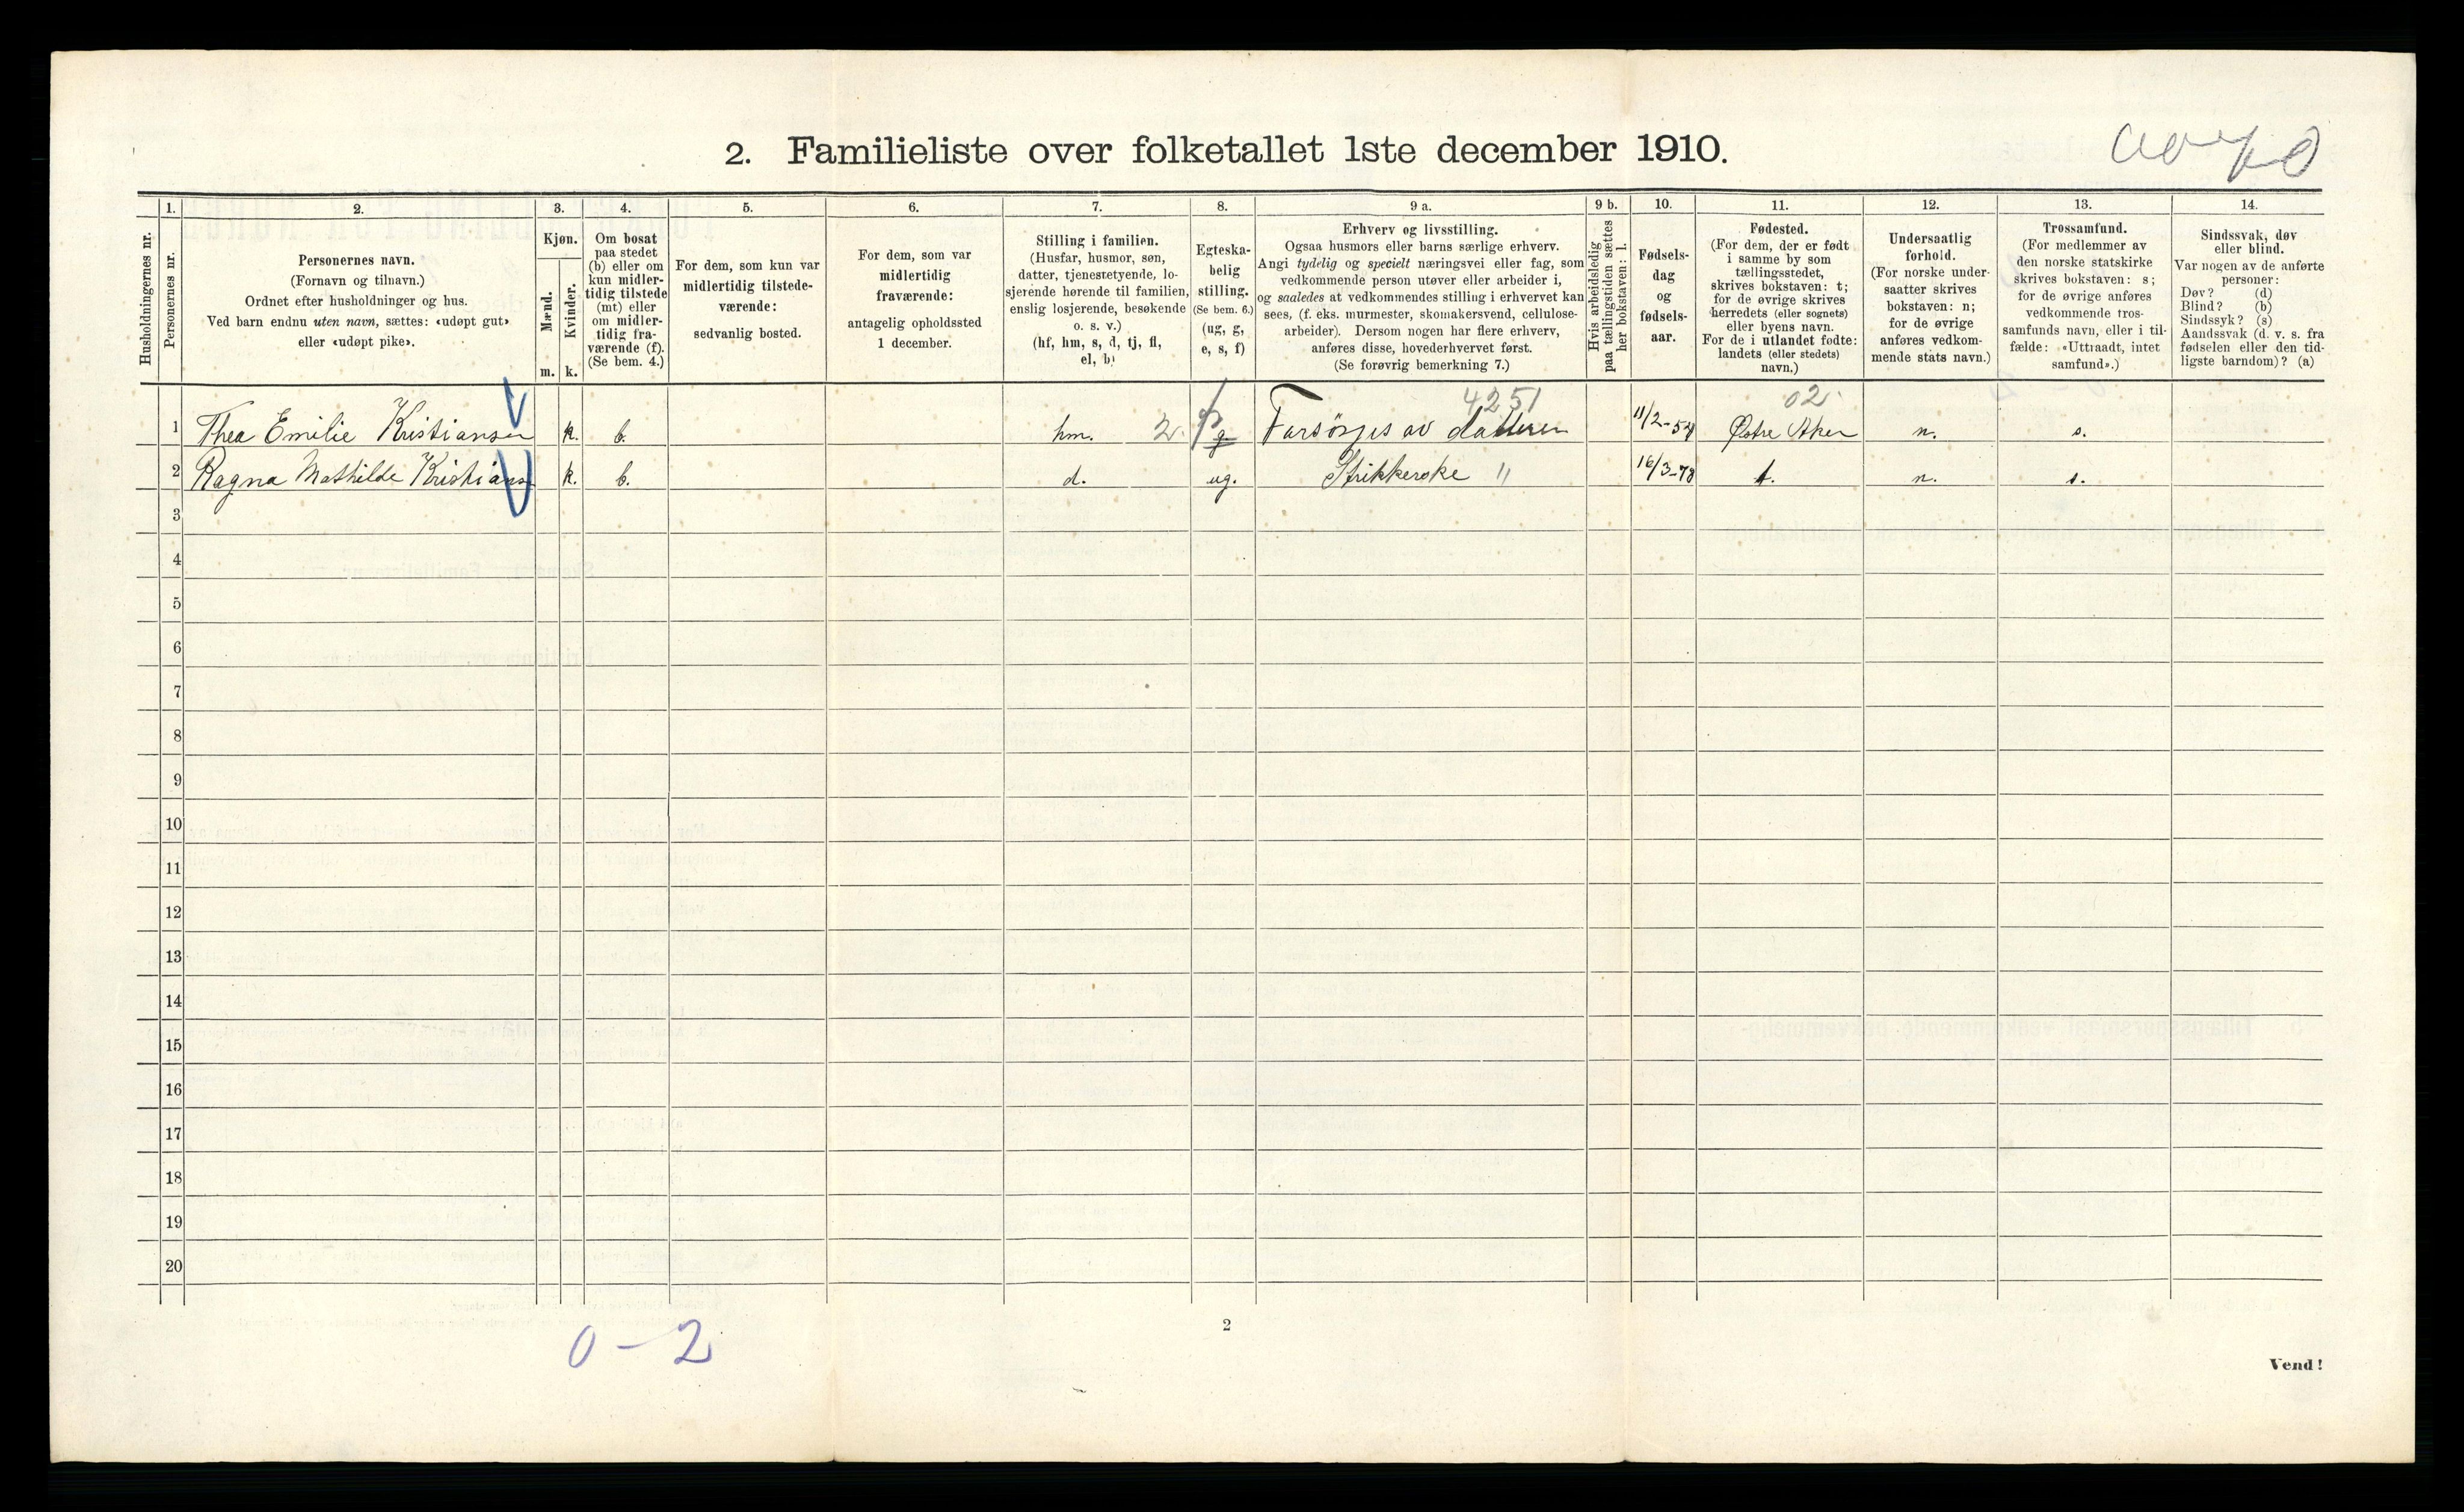 2. Familieliste over folketallet 1ste december 1910.
Husholdningernes nr.
1.
Personernes nr.
2.
Personernes navn.
(Fornavn og tilnavn.)
Ordnet efter husholdninger og hus.
Ved barn endnu uten navn, sættes: «udøpt gut»
eller «udøpt pike».
3.
Kjøn.
Mænd.
m.
Kvinder.
k.
4.
Om bosat
paa stedet
(b) eller om
kun midler-
tidig tilstede
(mt) eller
om midler-
tidig fra-
værende (f).
(Se bem. 4.)
5.
For dem, som kun var
midlertidig tilstede-
værende:
sedvanlig bosted.
6.
For dem, som var
midlertidig
fraværende:
antagelig opholdssted
1 december.
7.
Stilling i familien.
(Husfar, husmor, søn,
datter, tjenestetyende, lo-
sjerende hørende til familien,
enslig losjerende, besøkende
o. s. v.)
(hf, hm, s, d, tj, fl,
el, b)
8.
Egteska-
belig
stilling.
(Se bem. 6.)
(ug, g,
e, s, f)
9 a.
Erhverv og livsstilling.
Ogsaa husmors eller barns særlige erhverv.
Angi tydelig og specielt næringsvei eller fag, som
vedkommende person utøver eller arbeider i,
og saaledes at vedkommendes stilling i erhvervet kan
sees, (f. eks. murmester, skomakersvend, cellulose-
arbeider). Dersom nogen har flere erhverv,
anføres disse, hovederhvervet først.
(Se forøvrig bemerkning 7.)
9 b.
Hvis arbeidsledig
paa tællingstiden sættes
her bokstaven: l.
10.
Fødsels-
dag
og
fødsels-
aar.
11.
Fødested.
(For dem, der er født
i samme by som
tællingsstedet,
skrives bokstaven: t;
for de øvrige skrives
herredets (eller sognets)
eller byens navn.
For de i utlandet fødte:
landets (eller stedets)
navn.)
12.
Undersaatlig
forhold.
(For norske under-
saatter skrives
bokstaven: n;
for de øvrige
anføres vedkom-
mende stats navn.)
13.
Trossamfund.
(For medlemmer av
den norske statskirke
skrives bokstaven: s;
for de øvrige anføres
vedkommende tros-
samfunds navn, eller i til-
fælde: «Uttraadt, intet
samfund».)
14.
Sindssvak, døv
eller blind.
Var nogen av de anførte
personer:
Døv? (d)
Blind? (b)
Sindssyk? (s)
Aandssvak (d. v. s. fra
fødselen eller den tid-
ligste barndom)? (a)
4251 02
1 Thea Emilie Kristiansen k. b. hm. 2. g Farsørges av datteren 11/2-54 Østre Aker n. s.
2 Ragna Mathilde Kristians k. b. d. ug. Strikkerske " 16/3-78 t. n. s.
3
4
5
6
7
8
9
10
11
12
13
14
15
16
17
18
19
20
0-2
2
Vend!